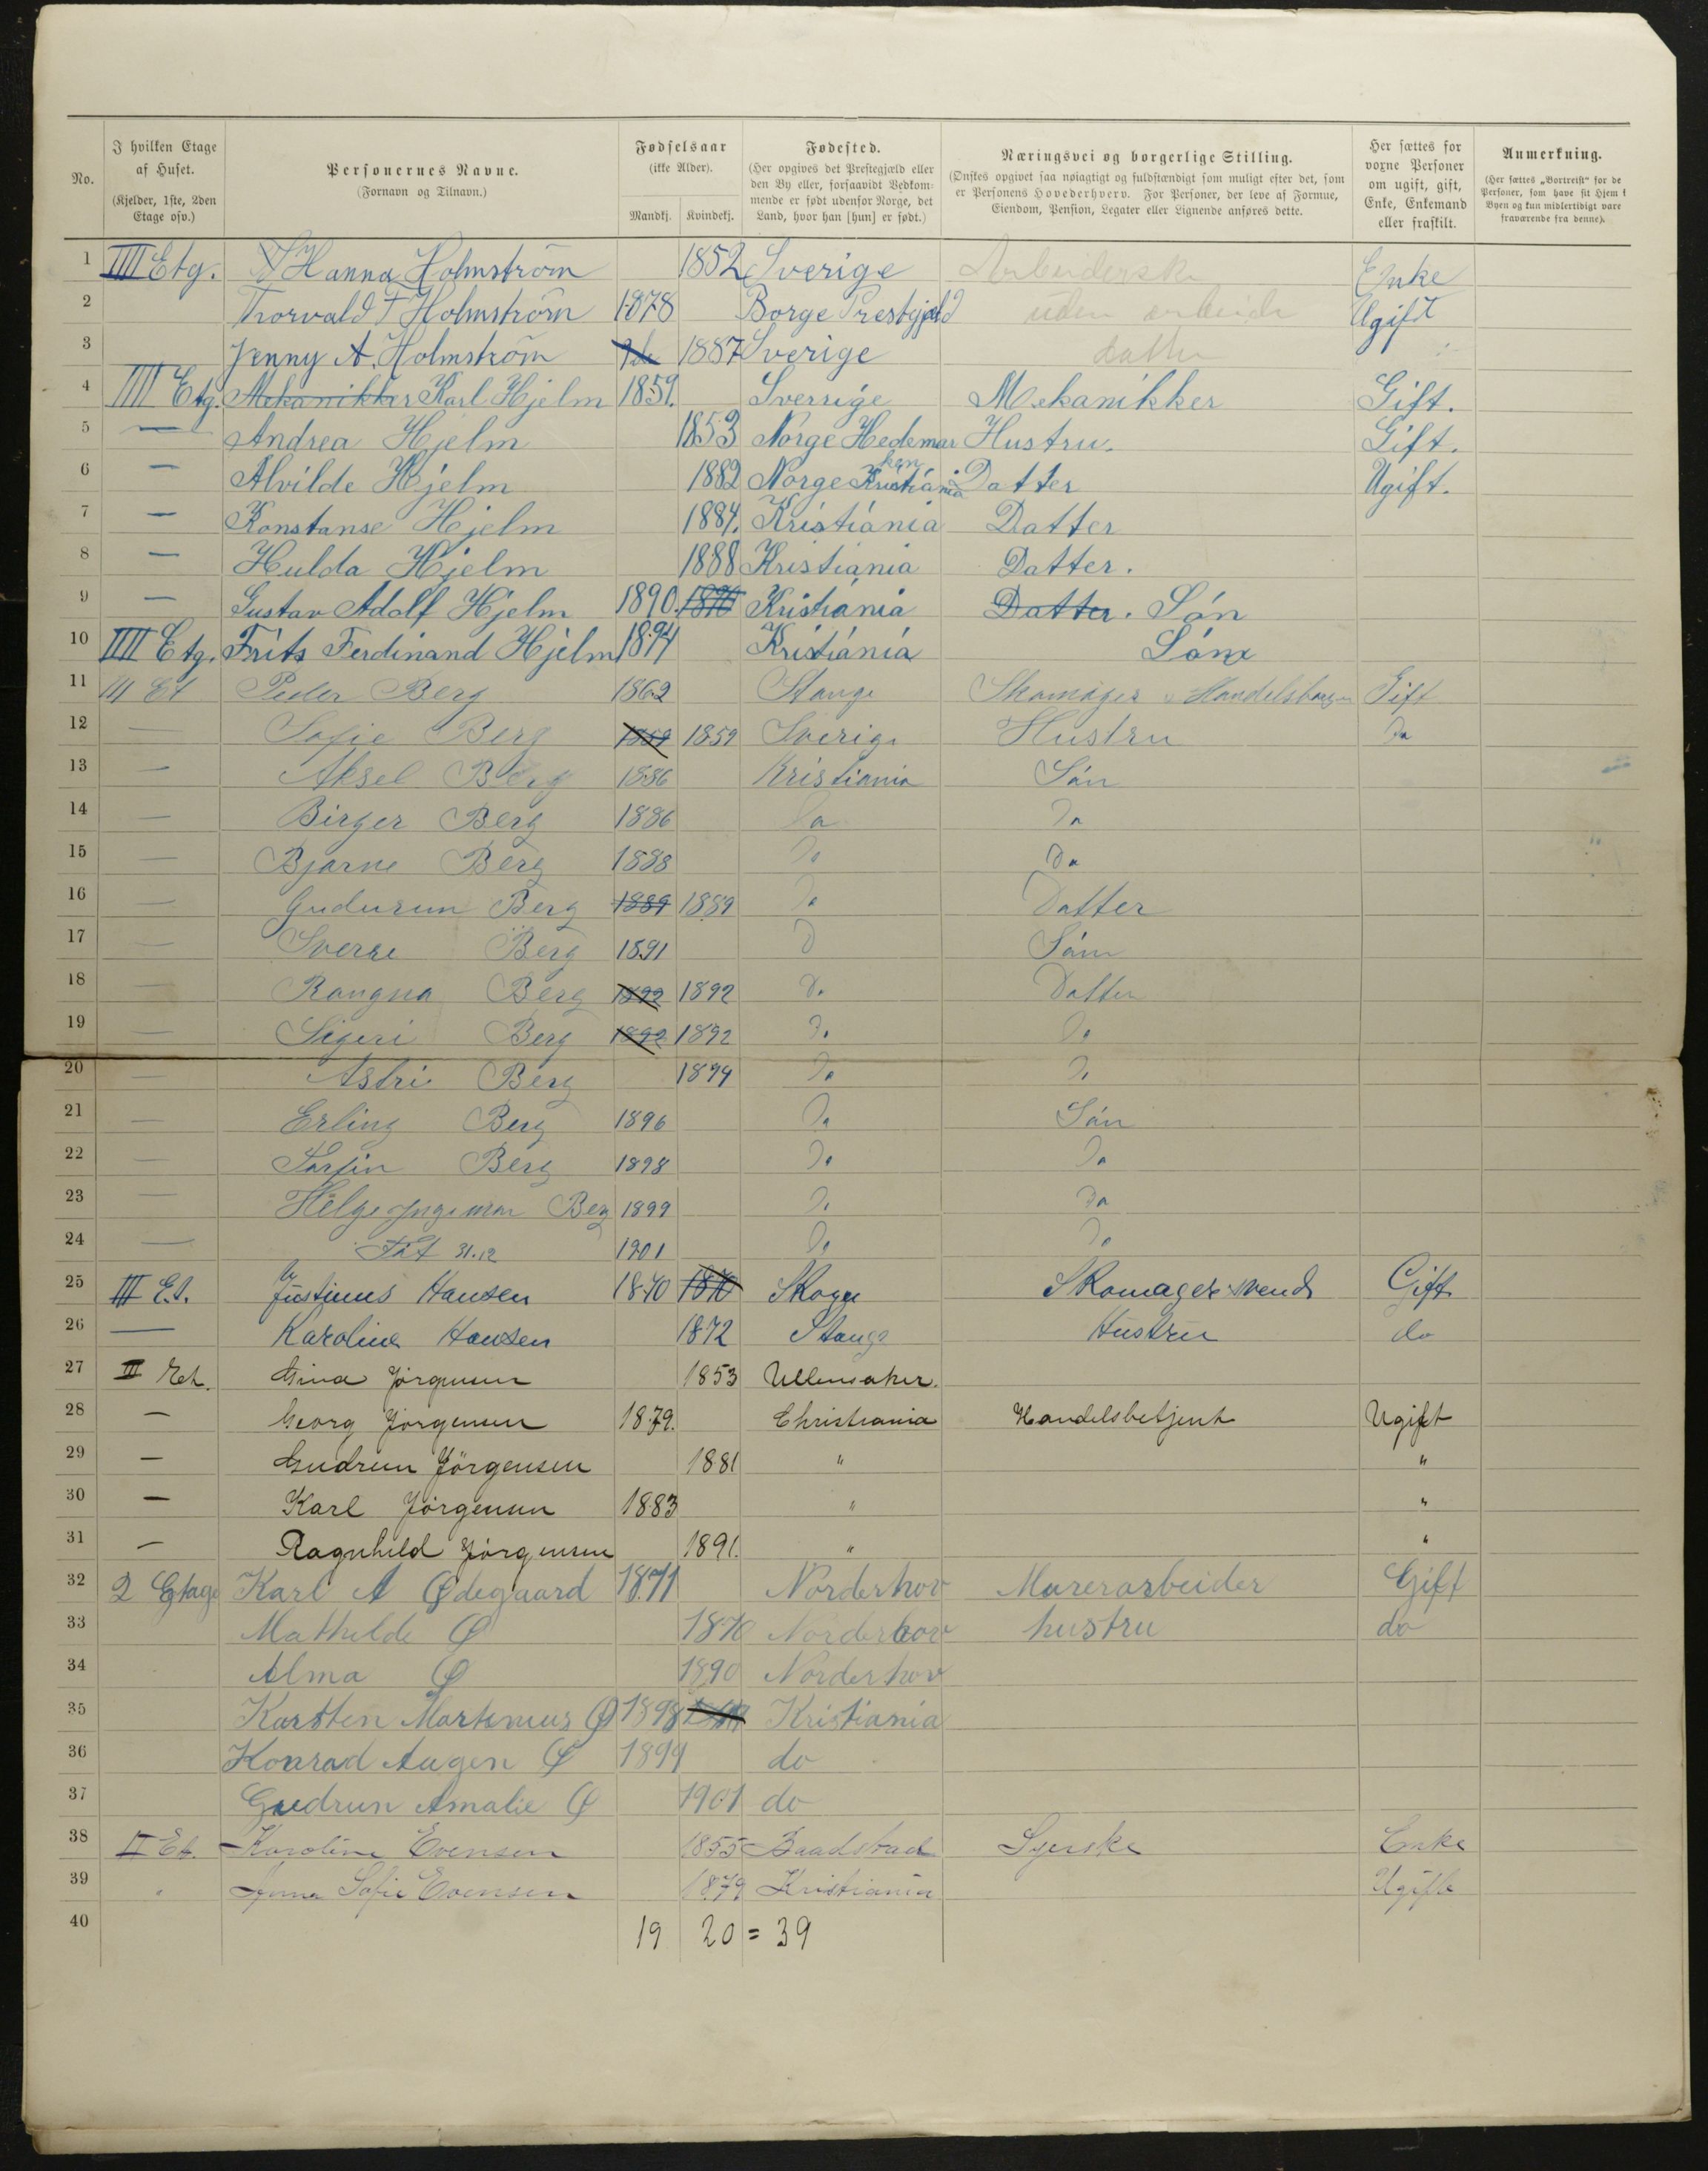 No.
I hvilken Etage af Huset. (Kjelder, 1ste, 2den Etage osv.)
Personernes Navne. (Fornavn og Tilnavn.)
Fødselsaar (ikke Alder). Mandkj. Kvindekj.
Fødested. (Her opgives det Prestegjæld eller den By eller, forsaavidt Vedkommende er født udenfor Norge, det Land, hvor han [hun] er født.)
Næringsvei og borgerlige Stilling. (Ønskes opgivet saa nøiagtigt og fuldstændigt som muligt efter det, som er Personens Hovederhverv. For Personer, der leve af Formue, Eiendom, Pension, Legater eller Lignende anføres dette.
Her sættes for voxne Personer om ugift, gift, Enke, Enkemand eller fraskilt.
Anmerkning. (Her sættes „Bortreist“ for de Personer, som have sit Hjem i Byen og kun midlertidigt vare fraværende fra denne).
1 IIII Etg. Hanna Holmström 1852 Sverige Arbeiderske Enke
2 Thorvald F Holmström 1878 Borge Prestgjæld uden arbeide Ugift
3 Jenny A. Holmström 1887 Sverige datter
4 IIII Etg. Mekanikker Karl Hjelm 1859. Sverrige Mekanikker Gift.
5 — Andrea Hjelm 1853 Norge Hedemarken Hustru. Gift.
6 — Alvilde Hjelm 1882 Norge Kristiania Datter Ugift.
7 — Konstanse Hjelm 1884. Kristiania Datter
8 — Hulda Hjelm 1888 Kristiania Datter.
9 — Gustav Adolf Hjelm 1890. 1890 Kristiania Datter. Sön
10 IIII Etg. Frits Ferdinand Hjelm 1894 Kristiania Sön
11 III Et Peder Berg 1862 Stange Skomager Handelsborger Gift
12 — Sofie Berg 1859 1859 Sverige Hustru Do
13 — Aksel Berg 1886 Kristiania Sön
14 — Birger Berg 1886 Do Do
15 — Bjarne Berg 1888 Do Do
16 — Gudurun Berg 1889 1889 Do Datter
17 — Sverre Berg 1891 D Sön
18 — Rangna Berg 1892 1892 Do Datter
19 — Sigeri Berg 1892 1892 Do Do
20 — Astri Berg 1894 Do Do
21 — Erling Berg 1896 Do Sön
22 — Torfin Berg 1898 Do Do
23 — Helge Ingemar Berg 1899 Do Do
24 — Föt 31.12 1901 Do Do
25 III Et. Justinus Hansen 1870 1870 Skoger Skomagersvend Gift
26 — Karoline Hansen 1872 Stange Hustru do
27 III Et. Gina Jörgensen 1853 Ullensaker.
28 — Georg Jörgensen 1879. Christiania Handelsbetjent Ugift
29 — Gudrun Jörgensen 1881 " "
30 — Karl Jörgensen 1883 " "
31 — Ragnhild Jörgensen 1891. " "
32 2 Etage Karl A Ødegaard 1871 Norderhov Murerarbeider Gift
33 Mathilde Ø 1870 Norderhov hustru do
34 Alma Ø 1890 Norderhov
35 Karsten Martinius Ø 1898 Kristiania
36 Konrad Augen Ø 1899 do
37 Gudrun Amalie Ø 1901 do
38 II Et. Karoline Evensen 1855 Baadstad Syerske Enke
39 " Anna Sofie Evensen 1879 Kristiania Ugift
40 19 20 = 39